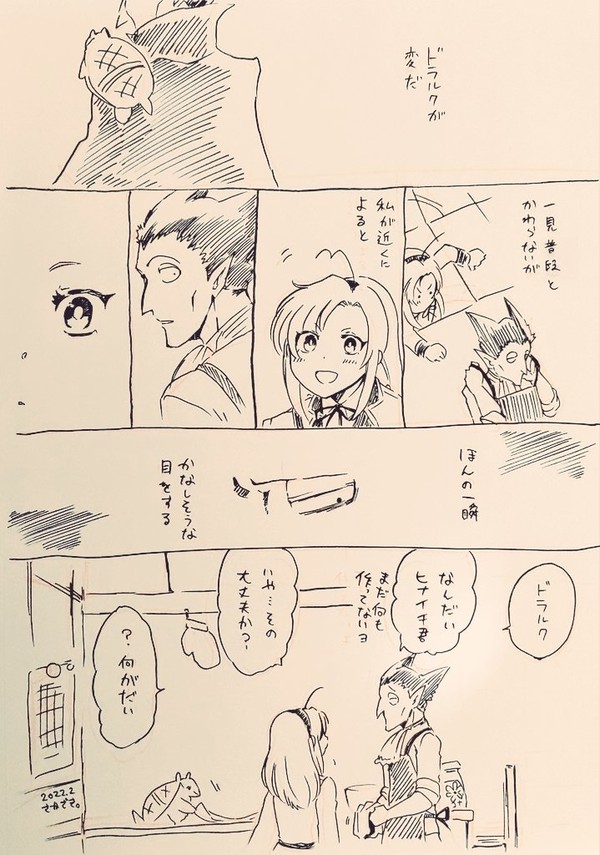 ドラルクが
変だ
一見普段と
かわらないが
私が近くに
よると
ほんの一瞬
かなしそうな
目をする
ドラルク
なんだい
ヒナイチ君
まだ何も
作ってないヨ
いや…その
大丈夫か?
?何がだい
2022.2